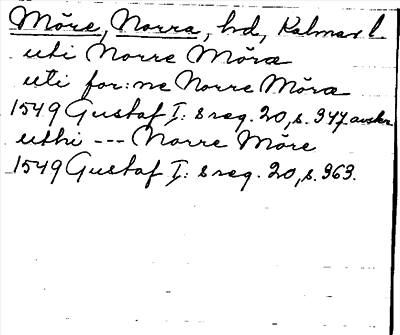 Möre, Norra, hd, Kalmar l.
uti Norre Möra
uti for:ne Norre Möra
1549 Gustaf I: s reg. 20, s. 347 avskr.
uthi --- Norre Möre
1549 Gustaf I: s reg. 20, s. 363.